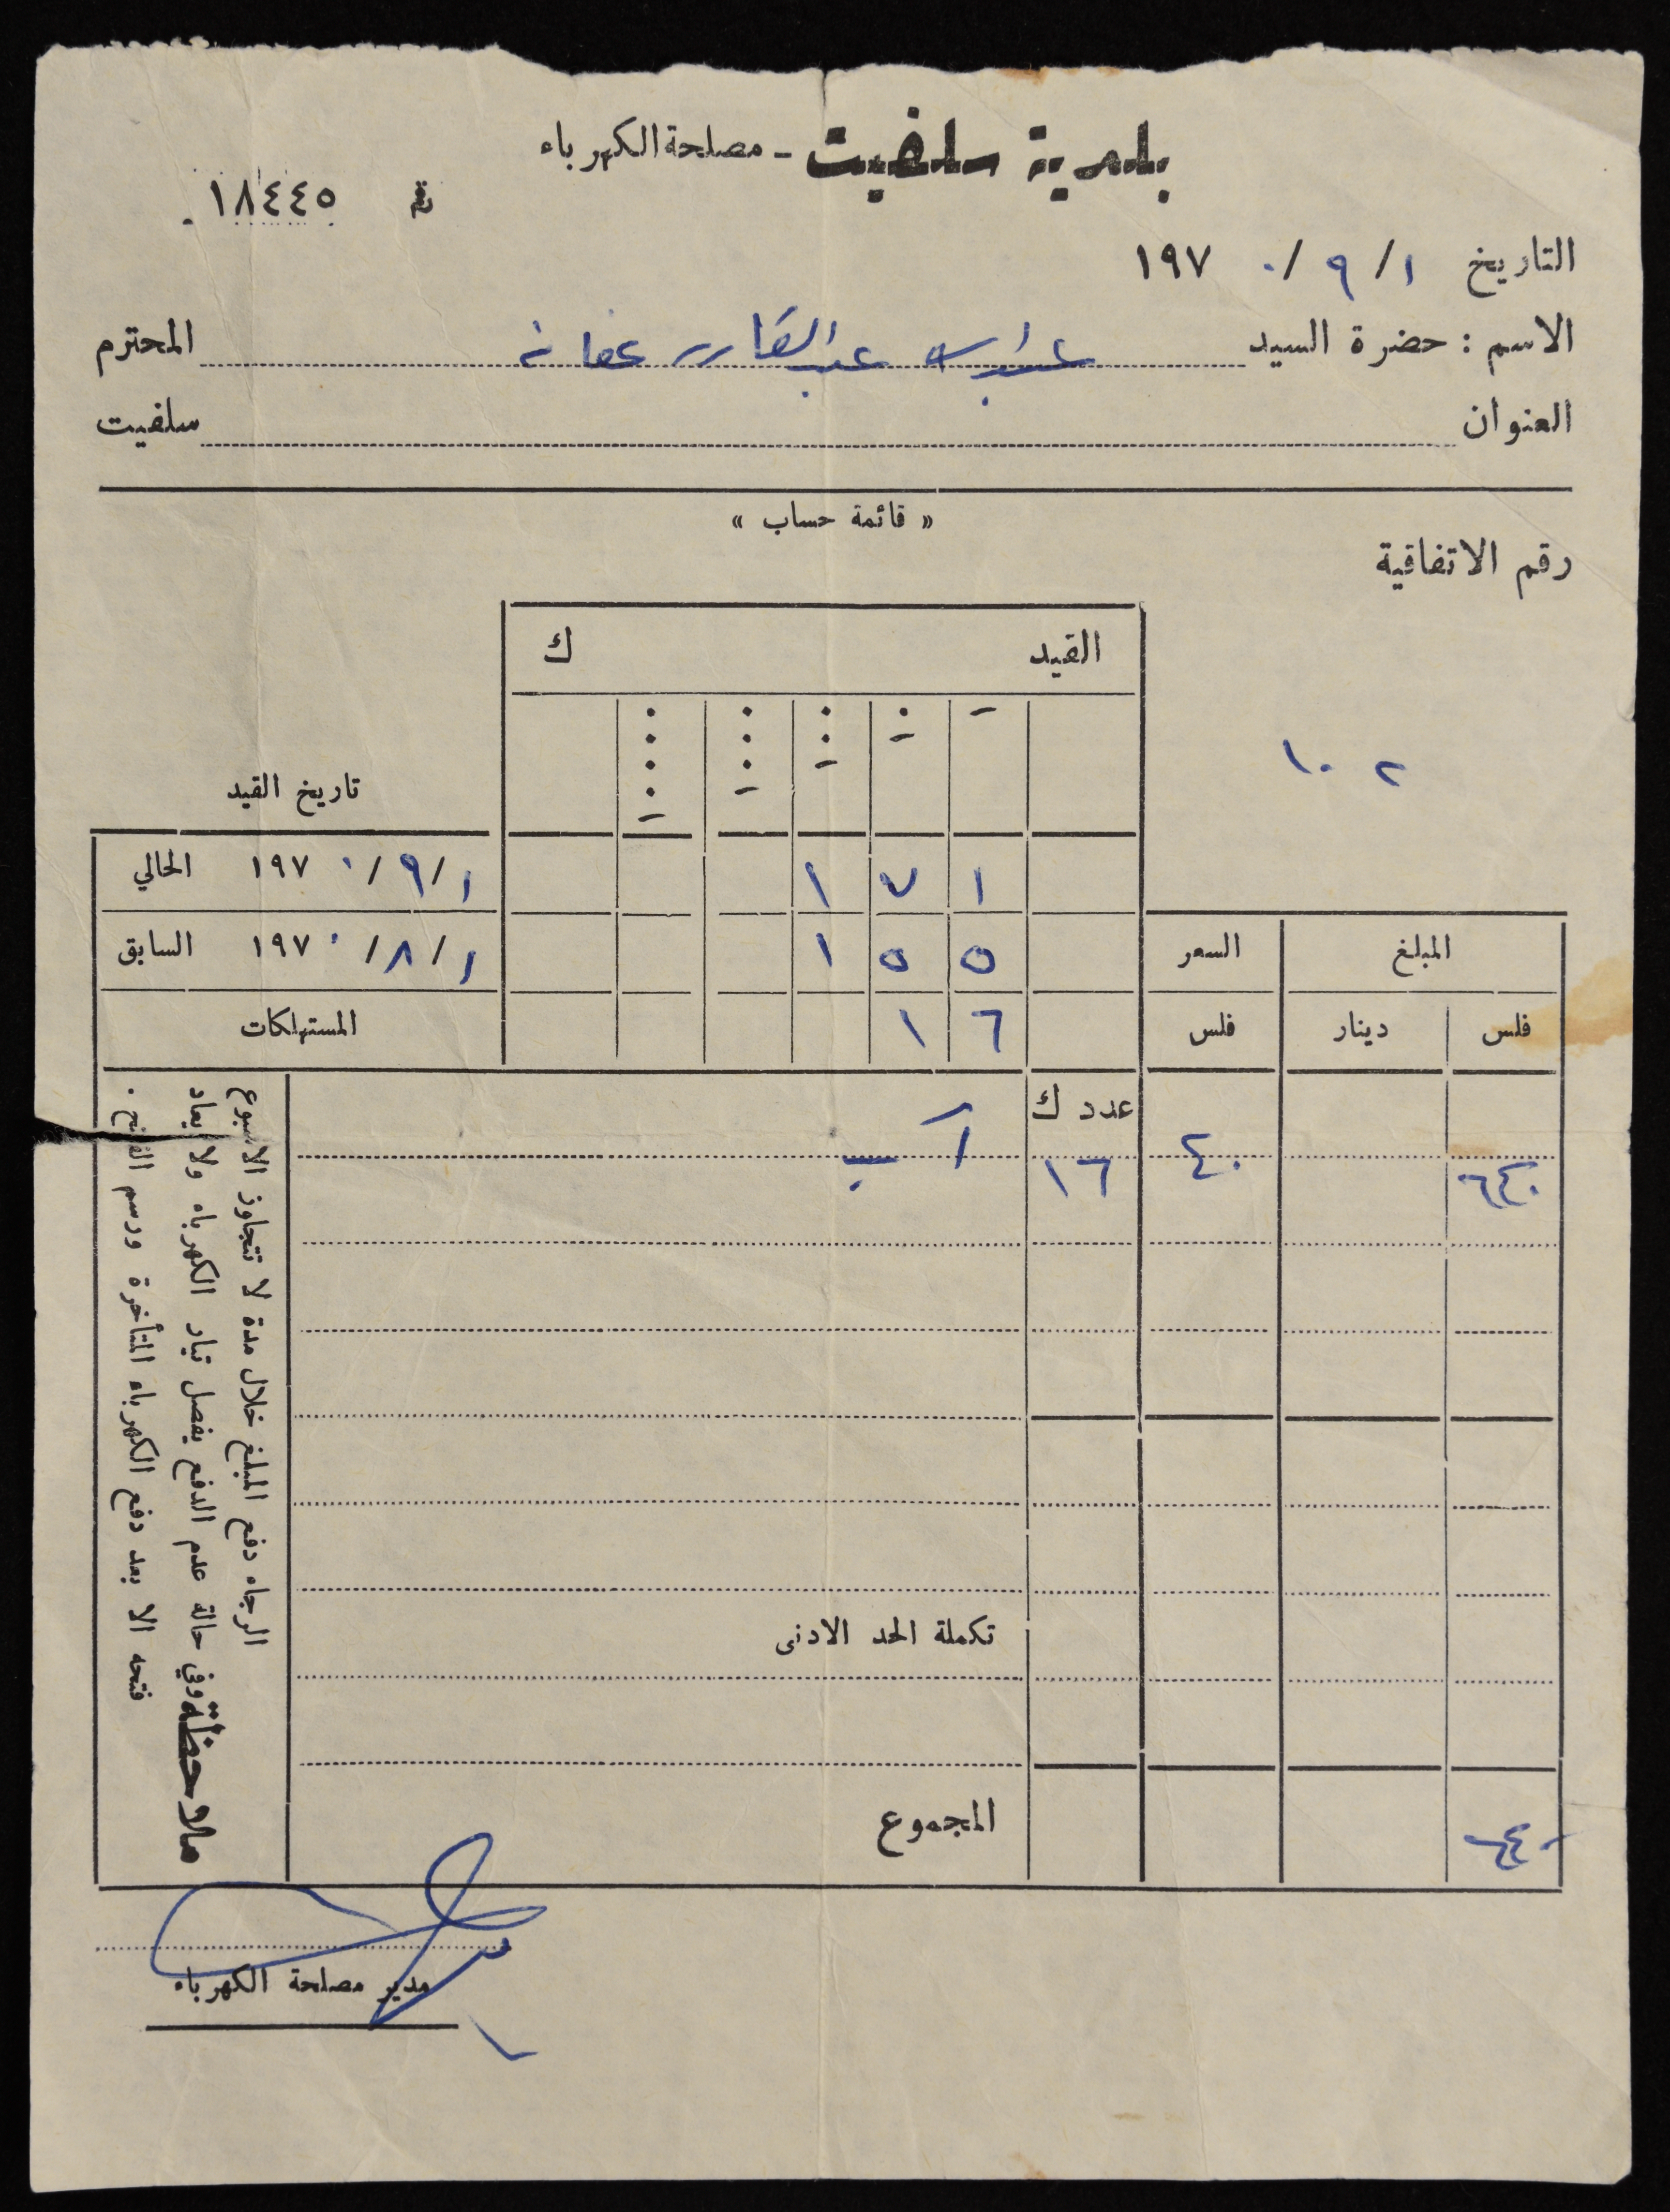 بلدية سلفيت - مصلحة الكهرباء
رقم ١٨٤٤٥
التاريخ ١ / ٩ / ١٩٧٠
الاسم : حضرة السيد عبد القادر عفانه المحترم
العنوان سلفيت
« قائمة حساب »
رقم الاتفاقية
١٠٢
القيد ك
تاريخ القيد
١٧١ ١ / ٩ / ١٩٧٠ الحالي
١٥٥ ١ / ٨ / ١٩٧٠ السابق
المبلغ السعر
فلس دينار فلس ١٦ المستهلكات
عدد ك
٦٤٠ ٤٠ ١٦ آب
تكملة الحد الادنى
المجموع
٦٤٠
ملاحظة
الرجاء دفع المبلغ خلال مدة لا تتجاوز الاسبوع
وفي حالة عدم الدفع يفصل تيار الكهرباء ولا يعاد
فتحه الا بعد دفع الكهرباء المتأخرة ورسم الفتح .
مدير مصلحة الكهرباء